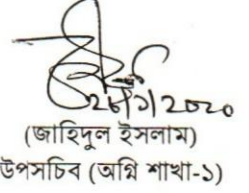 ২৮/১/২০২০
(জাহিদুল ইসলাম)
উপসচিব (অগ্নি শাখা-১)